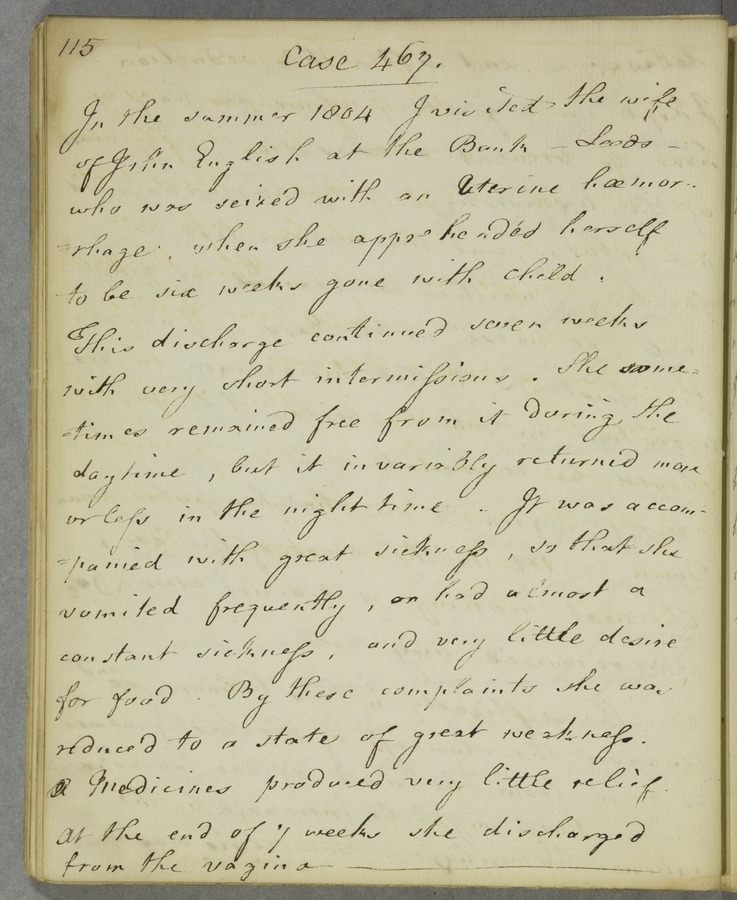 115
Case 467.
In the summer 1804 I visited the wife
of John English at the Bank - Leeds -
who was seized with an Uterine hæmor-
-rhage, when she apprehended herself
to be six weeks gone with child.
This discharge continued seven weeks
with very short intermissions. She some=
=times remained free from it during the
daytime, but it invariably returned more
or less in the night time. It was accom-
-panied with great sickness, so that she
vomited frequently, or had almost a
constant sickness, and very little desire
for food. By these complaints she was
reduced to a state of great weakness.
Medicines produced very little relief.
At the end of 7 weeks she discharged
from the vagina